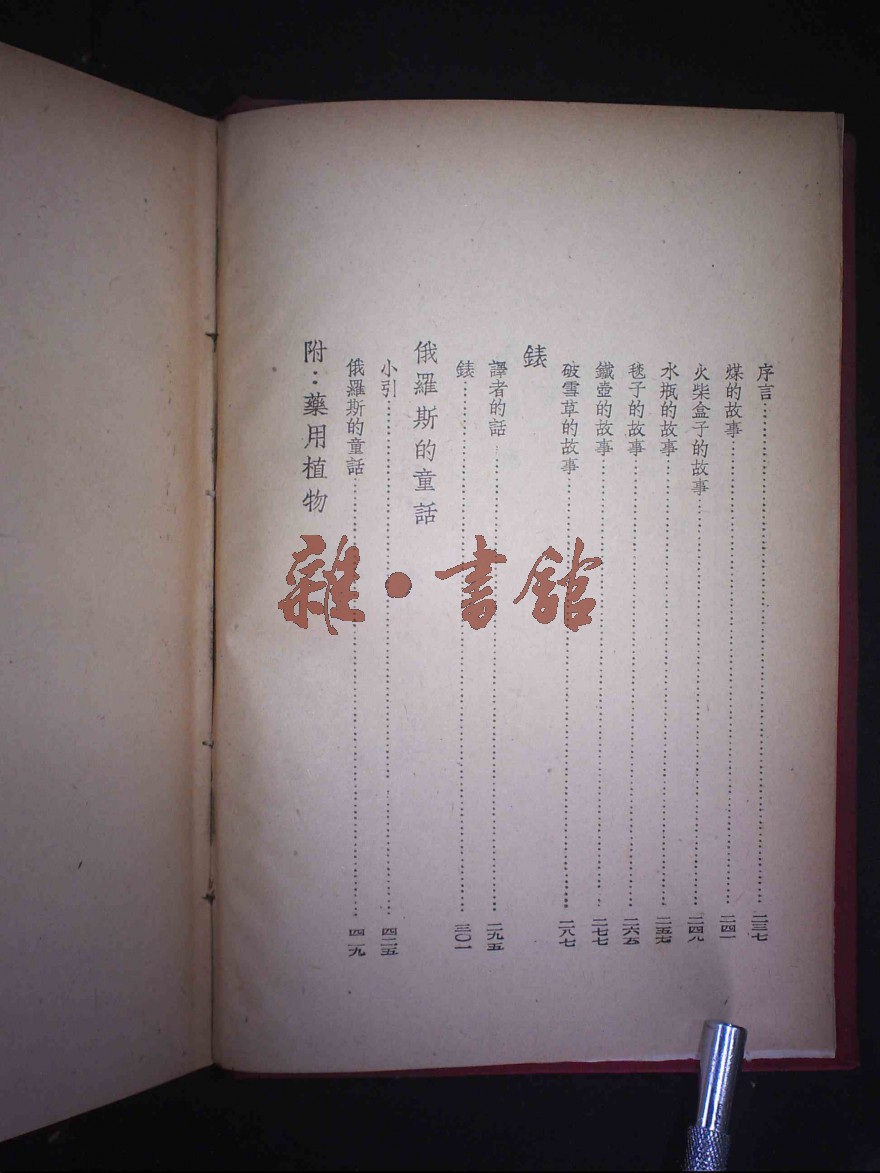 序言……二三七
煤的故事……二四一
火柴盒子的故事……二四九
水瓶的故事……二五七
毯子的故事……二六五
鐵壺的故事……二七七
破雪草的故事……二八七
錶
譯者的話……二九五
錶……三〇一
俄羅斯的童話
小引……四二五
俄羅斯的童話……四二九
附：藥用植物
雜·書館